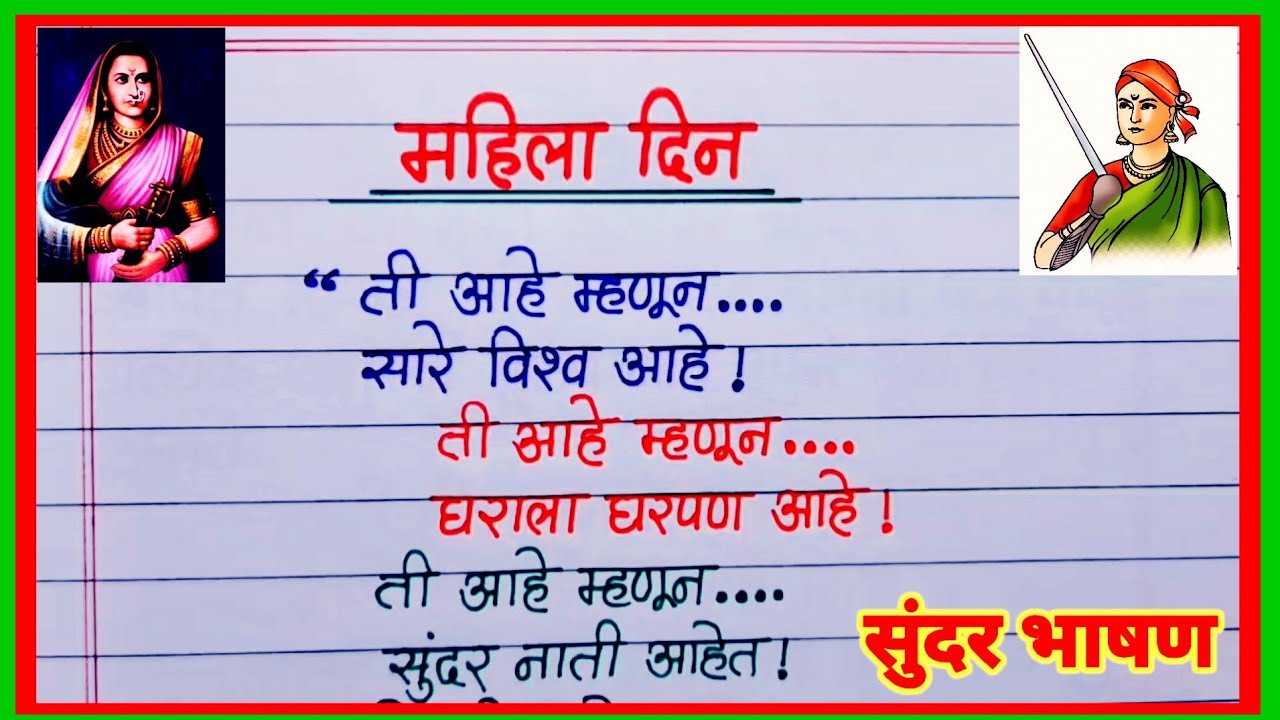 महिला दिन
“ ती आहे म्हणून....
सारे विश्व आहे !
ती आहे म्हणून....
घराला घरपण आहे !
ती आहे म्हणून....
सुंदर नाती आहेत !
सुंदर भाषण